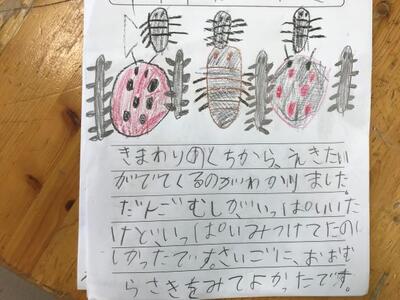 きまわりのくちから、えきたい
がでてくるのがわかりました。
だんごむしが、いっぱいいた
けど、いっぱいみつけてたの
しかったです。さいごに、おおむ
らさきをみてよかったです。